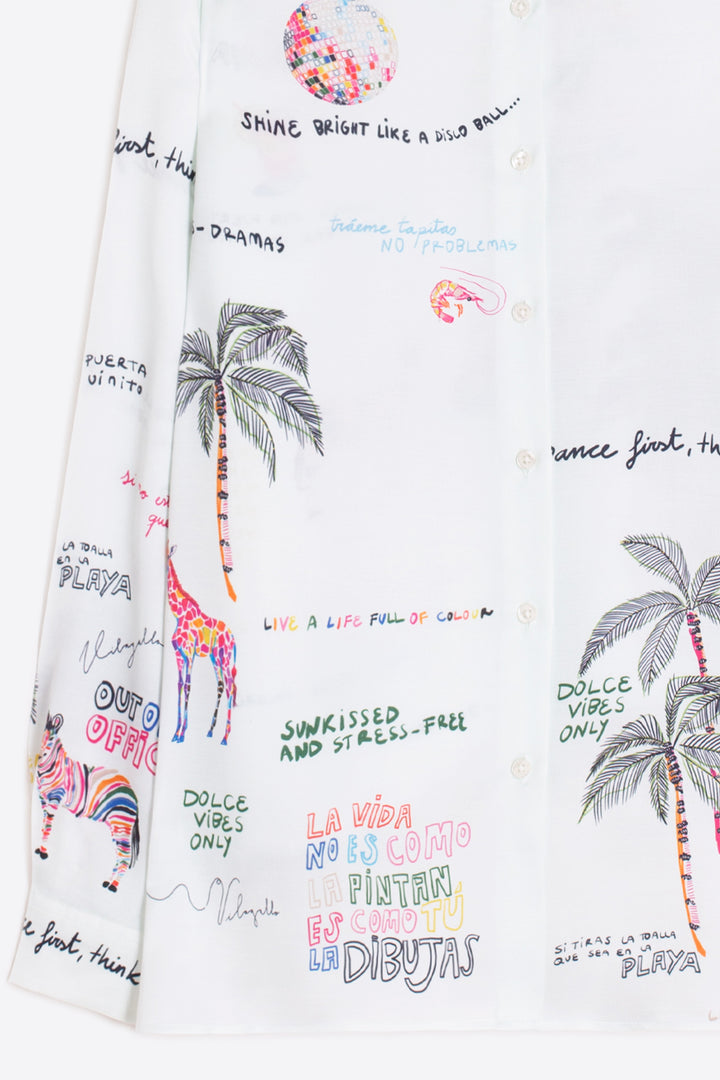 SHINE BRIGHT LIKE A DISCO BALL...
first, thin
-DRAMAS
tráeme tapitas
NO PROBLEMAS
PUERTA
vinito
ance first, th
si no est
que
LA TOALLA
EN LA
PLAYA
LIVE A LIFE FULL OF COLOUR
Vilagallo
OUT O
OFFIC
DOLCE
VIBES
ONLY
SUNKISSED
AND STRESS-FREE
DOLCE
VIBES
ONLY
LA VIDA
NO ES COMO
LA PINTAN
ES COMO TÚ
LA DIBUJAS
Vilagallo
e first, think
SI TIRAS LA TOALLA
QUE SEA EN LA
PLAYA